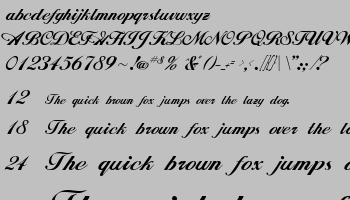 abcdefghijklmnopqrstuvwxyz
ABCDEFGHIJKLMNOPQRSTUVW
0123456789~!@#$% & ()-_+=
12 The quick brown fox jumps over the lazy dog.
18 The quick brown fox jumps over the
24 The quick brown fox jumps